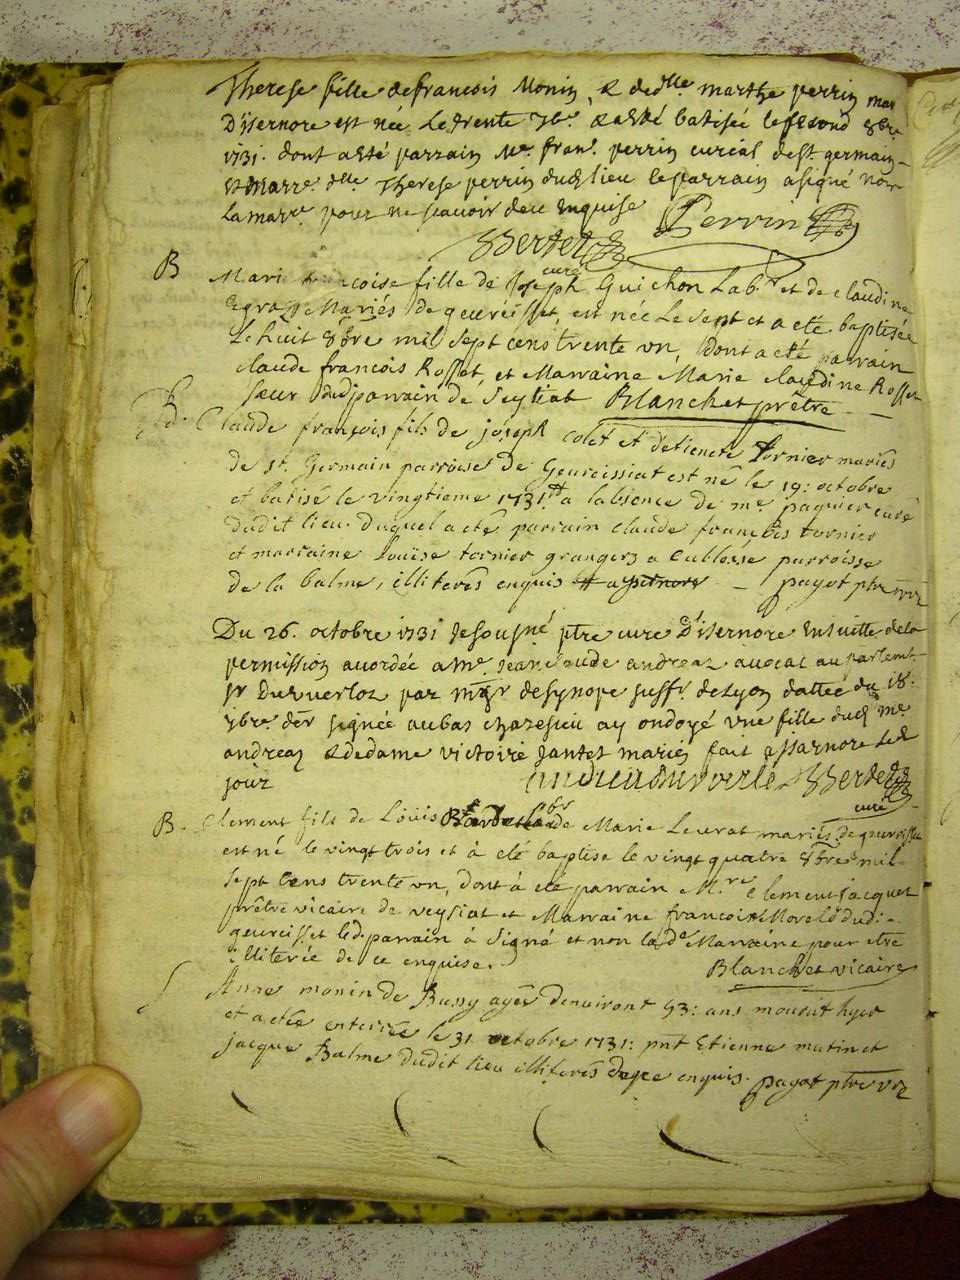 Therese fille de francois Monin, & de dlle marthe perrin mar
D'isernore est née Le trente 7br. & a esté batisée le second 8bre
1731. dont a esté parrain Me. fran. perrin curial de st. germain
et Marr. dlle Therese perrin dud lieu le parrain a signé non
la marr. pour ne scavoir de ce Enquise
Perrin
curé
B
fille de Joseph Guichon Lab.r et de claudine
Mariés de geurcisset, est née Le sept et a eté baptisée
Le huit 8bre mil sept cens trente un, dont a eté parrain
claude francois Rosset, et Marraine Marie claudine Rosset
sœur dud parrain de Blanchet prêtre
B.
Claude françois fils de joseph Colet et d'etienete tornier mariés
de st. Germain parroisse de Geurcissiat est né le 19: octobre
et batisé le vingtieme 1731. a l'absence de me. paquier curé
dudit lieu. Duquel a eté parrain claude françois tornier
et marraine Louise tornier grangers a Cublesse parroisse
de la balme, illiterés enquis payot ptre
Du 26. octobre 1731 Je sousigné ptre curé D'isernore Ensuitte de la
permission accordée a Me. Jean claude andreaz avocat au parlemt.
sr Duverloz par mgr de synope suffr. de Lyon dattée du 18.
7bre der signée au bas ay ondoyé une fille dud me.
andreaz & de dame victoire Jantet mariés fait a isarnore led
jour
curé
B.
Clement fils de Louis de Marie Levrat mariés de geurcisset
est né le vingt trois et à eté baptise le vingt quatre 8bre mil
sept cens trente un, dont à eté parrain M.re Clement jacquet
prêtre vicaire de veysiat et Marraine francoise Morel dudi
geurcisset led. parrain à signé et non lad.e Marraine pour etre
illiterée de ce enquise. Blanchet vicaire
S
Anne monin de Bussy agée d'environt 93: ans mourut hyer
et a etée enterrée le 31 octobre 1731: pnt Etienne mutinet
jacque Balme dudit lieu illiterés de ce enquis. payot ptre